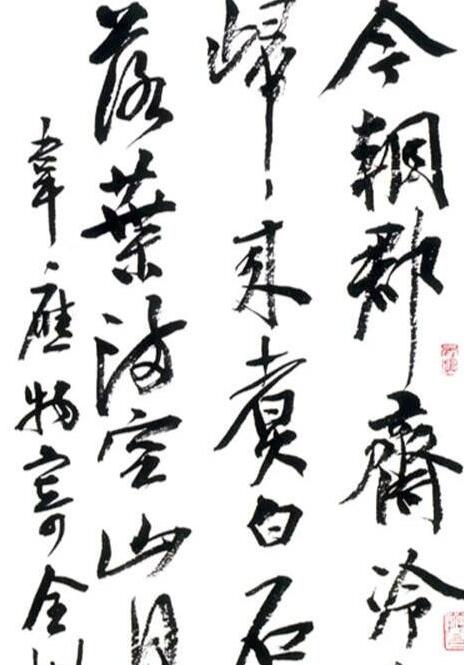 今朝郡齋冷
歸來煮白石
落葉滿空山
韋應物寄全